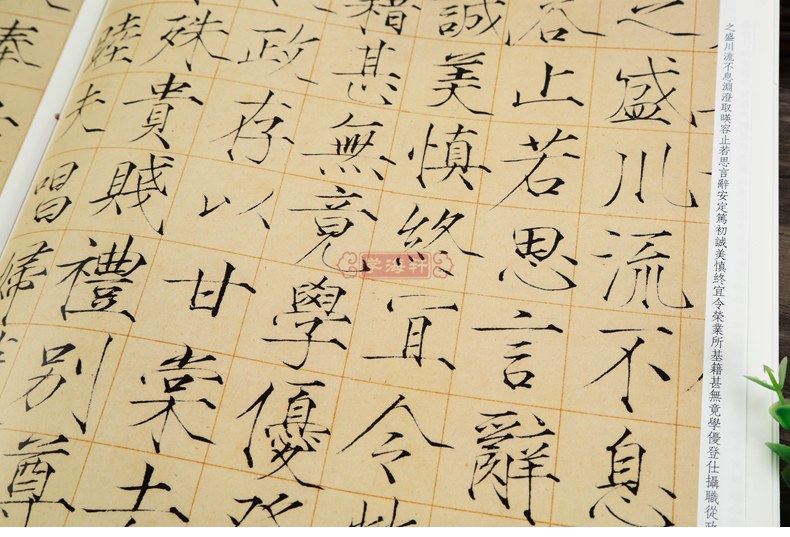 之盛川流不息淵澄取暎容止若思言辭安定篤初誠美慎終宜令榮業所基籍甚無竟學優登仕攝職從政
之盛川流不息
容止若思言辭
誠美慎終宜令
籍甚無竟學優登
政存以甘棠去
殊貴賤禮別尊
睦夫唱婦
奉
学海轩